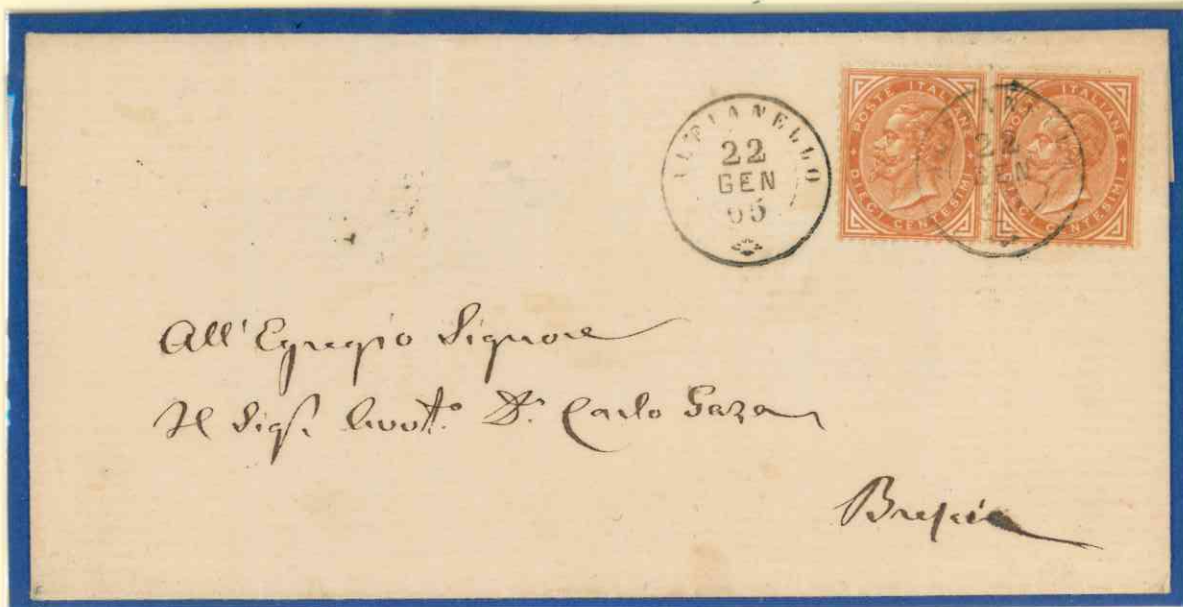 ALFIANELLO
22
GEN
65
POSTE ITALIANE
DIECI CENTESIMI
POSTE ITALIANE
DIECI CENTESIMI
22
GEN
All'Egregio Signore
Il Sigr. Avvto. Dr. Carlo
Brescia